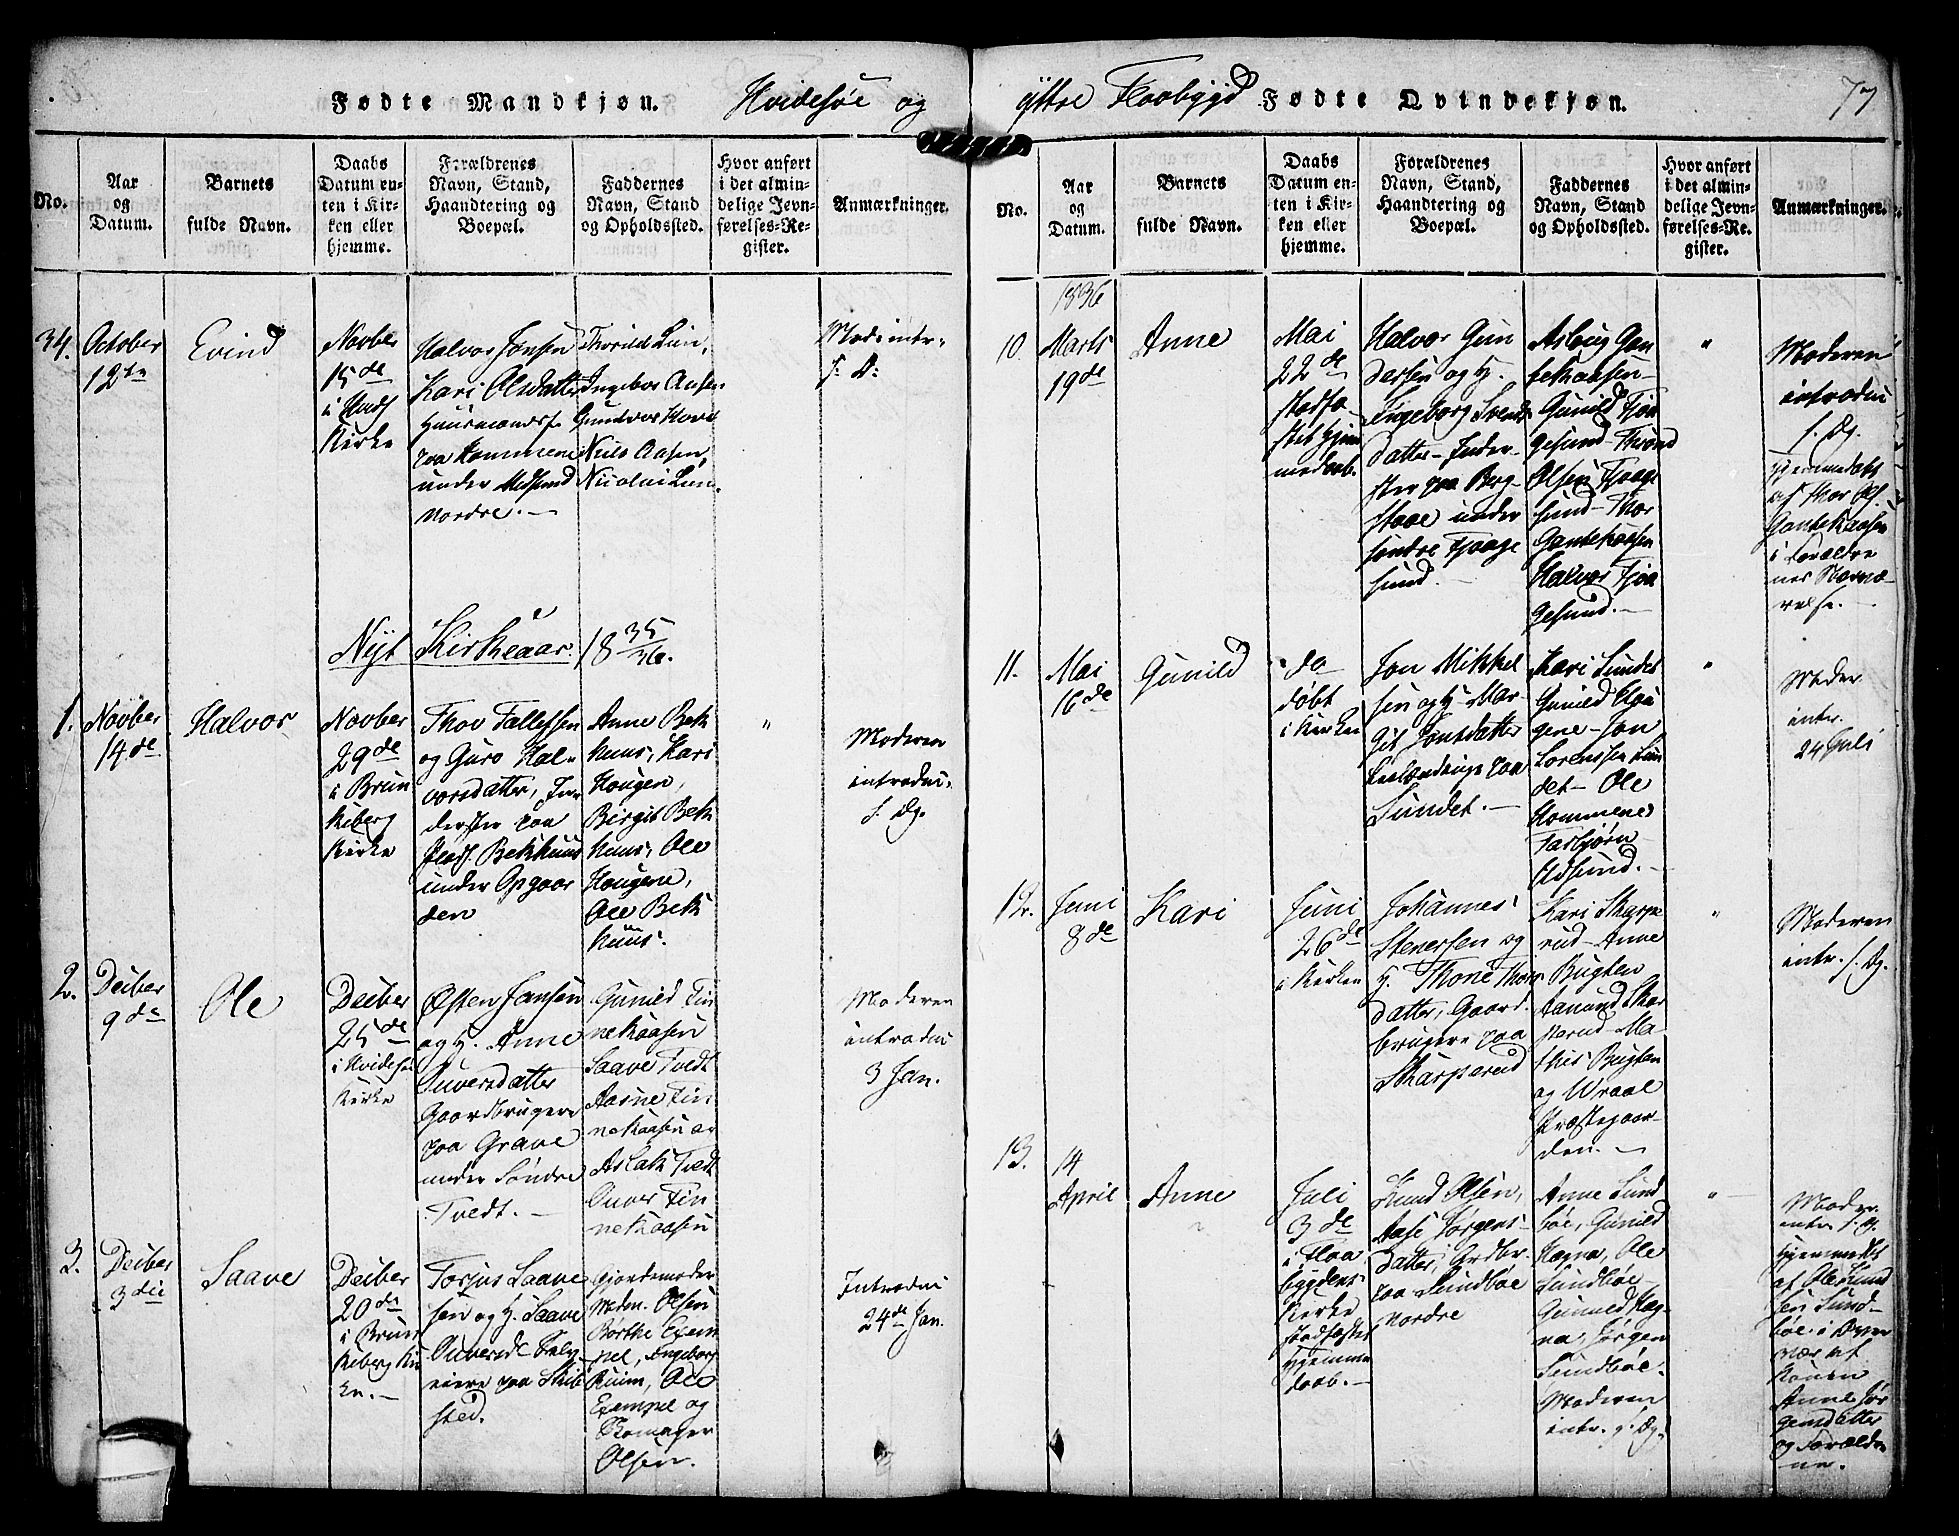 Fødte Mandkjøn. Hvidesøe og
No.
Aar
og
Datum.
Barnets
fulde Navn.
Daabs
Datum en-
ten i Kir-
ken eller
hjemme.
Forældrenes
Navn, Stand,
Haandtering og
Boepæl.
Faddernes
Navn, Stand
og Opholdssted.
Hvor anført
i det almin-
delige Jevn-
førelses-Re-
gister.
Anmærkninger.
34.
October
12te
Evind
Novber
15de
i Hvids
Kirke
Halvor Jonsen
Kari Olsdatter
Huusmandsf.
paa Kommene
under
Nordre.
Thorild Lun,
Ingebor Aasen
Gundvor
Niels Aasen,
Nicolai Lun.
Mod: intr.
f. D:
Nyt Kirkeaar. 1835/36.
1.
Novber
14de
Halvor
Novber
29de
i Brun
keberg
Kirke
Thov Tallefsen
og Guro Hal-
vorsdatter, In-
derster paa
Plads. Bekhuus
under Opgaar
den
Anne Bek
huus, Kari
Haugen,
Birgit Bek
huus, Ole
Haugene,
Ole Bek
huus.
"
Moderen
introdu:
f. Dg.
2.
Decber
9de
Ole
Decber
25de
i Hvidesø
Kirke
Østen Jansen
og H. Anne
Ouversdatter
Gaardbrugere
paa Grave
under Søndre
Tvedt.
Gunild Tin
nekaasen
Saave Tvedt
Aasne Tin
nekaasen
Aslak Tvedt
Ouver Tin
nekaasen
Moderen
introdu
3 Jan.
3.
Decber
3die
Saave
Decber
20de
i Brun
keberg Kir
ke.
Torjus Saave
sen og H. Saave
Ouversd. Selv
eiere paa Skib
sted.
Gjordemoder
Madm. Olsen
Børthe Exem
pel, Ingeborg
Ruim, Ole
Exempel og
Olsen.
Introdu
24de Jan.
yttre Flaabygd Fødte Qvindekjøn. 77
No.
Aar
og
Datum.
Barnets
fulde Navn.
Daabs
Datum en-
ten i Kir-
ken eller
hjemme.
Forældrenes
Navn, Stand,
Haandtering og
Boepæl.
Faddernes
Navn, Stand
og Opholdssted.
Hvor anført
i det almin-
delige Jevn-
førelses-Re-
gister.
Anmærkninger.
1836
10.
Marts
19de
Anne
Mai
22de
stadfæ
stet hjem
medaab.
Halvor Gun
dersen og H.
Ingeborg Svends
datter Inder-
ster paa Berg-
staae under
søndre Fjaage
sund.
Aslaug Gan
tekaasen
Gunild Fjaa
gesund Thrond
Olsen Fjaage
sund Thor
Gantekaasen
Halvor Fjaa
gesund.
"
Moderen
introdu
f. Dg.
hjemmedøbt
af Thor Ols.
Gantekaasen
i Forældre
nes Nærvæ-
relse.
11.
Mai
16de
Gunild
do
døbt
i Kirken
Jon Mikkel
sen og H. Mar
git Jonsdatter
paa
Sundet.
Kari Sundet
Gunild Hau
gene Jon
Lorenssen Sun
det Ole
Kommenes
Tarbjørn
"
Moder.
intr.
24 Juli
12.
Juni
8de
Kari
Juni
26de
i Kirken
Johannes
Stenersen og
H. Thone Thors
datter, Gaard
brugere paa
Skarperud
Kari Skarpe
rud Anne
Bugten
Aanund Skar
perud Ma-
this Bugten
og Wraal
Præstegaar-
den.
"
Moderen
intr. f. Dg.
13.
14
April
Anne
Juli
3de
i Flaa
bygdens
Kirke
stadfæstet
hjemme
daab.
Knud Olsen,
Aase Jørgens
datter, Grdbr.
paa Sundbøe
nordre
Anne Sund
bøe, Gunild
Hegna, Ole
Sundbøe
Gunild Heg-
na, Jørgen
Sundbøe.
Moderen
intr. s. Dg.
"
Moder.
intr. f. D.
hjemmedøbt
af Ole Knud
sen Sund-
bøe i
vær af
Konen
Anne Jør
gensdatter
og Forældre
ne.